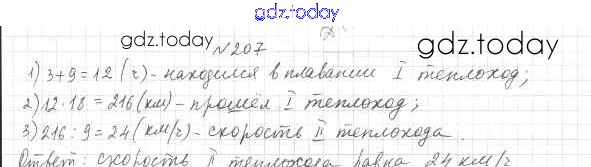 gdz.today
gdz.today №207 gdz.today
1) 3+9=12 (ч) - находился в плавании I теплоход;
2) 12·18=216 (км) - прошёл I теплоход;
3) 216:9=24 (км/ч) - скорость II теплохода.
Ответ: скорость II теплохода равна 24 км/ч